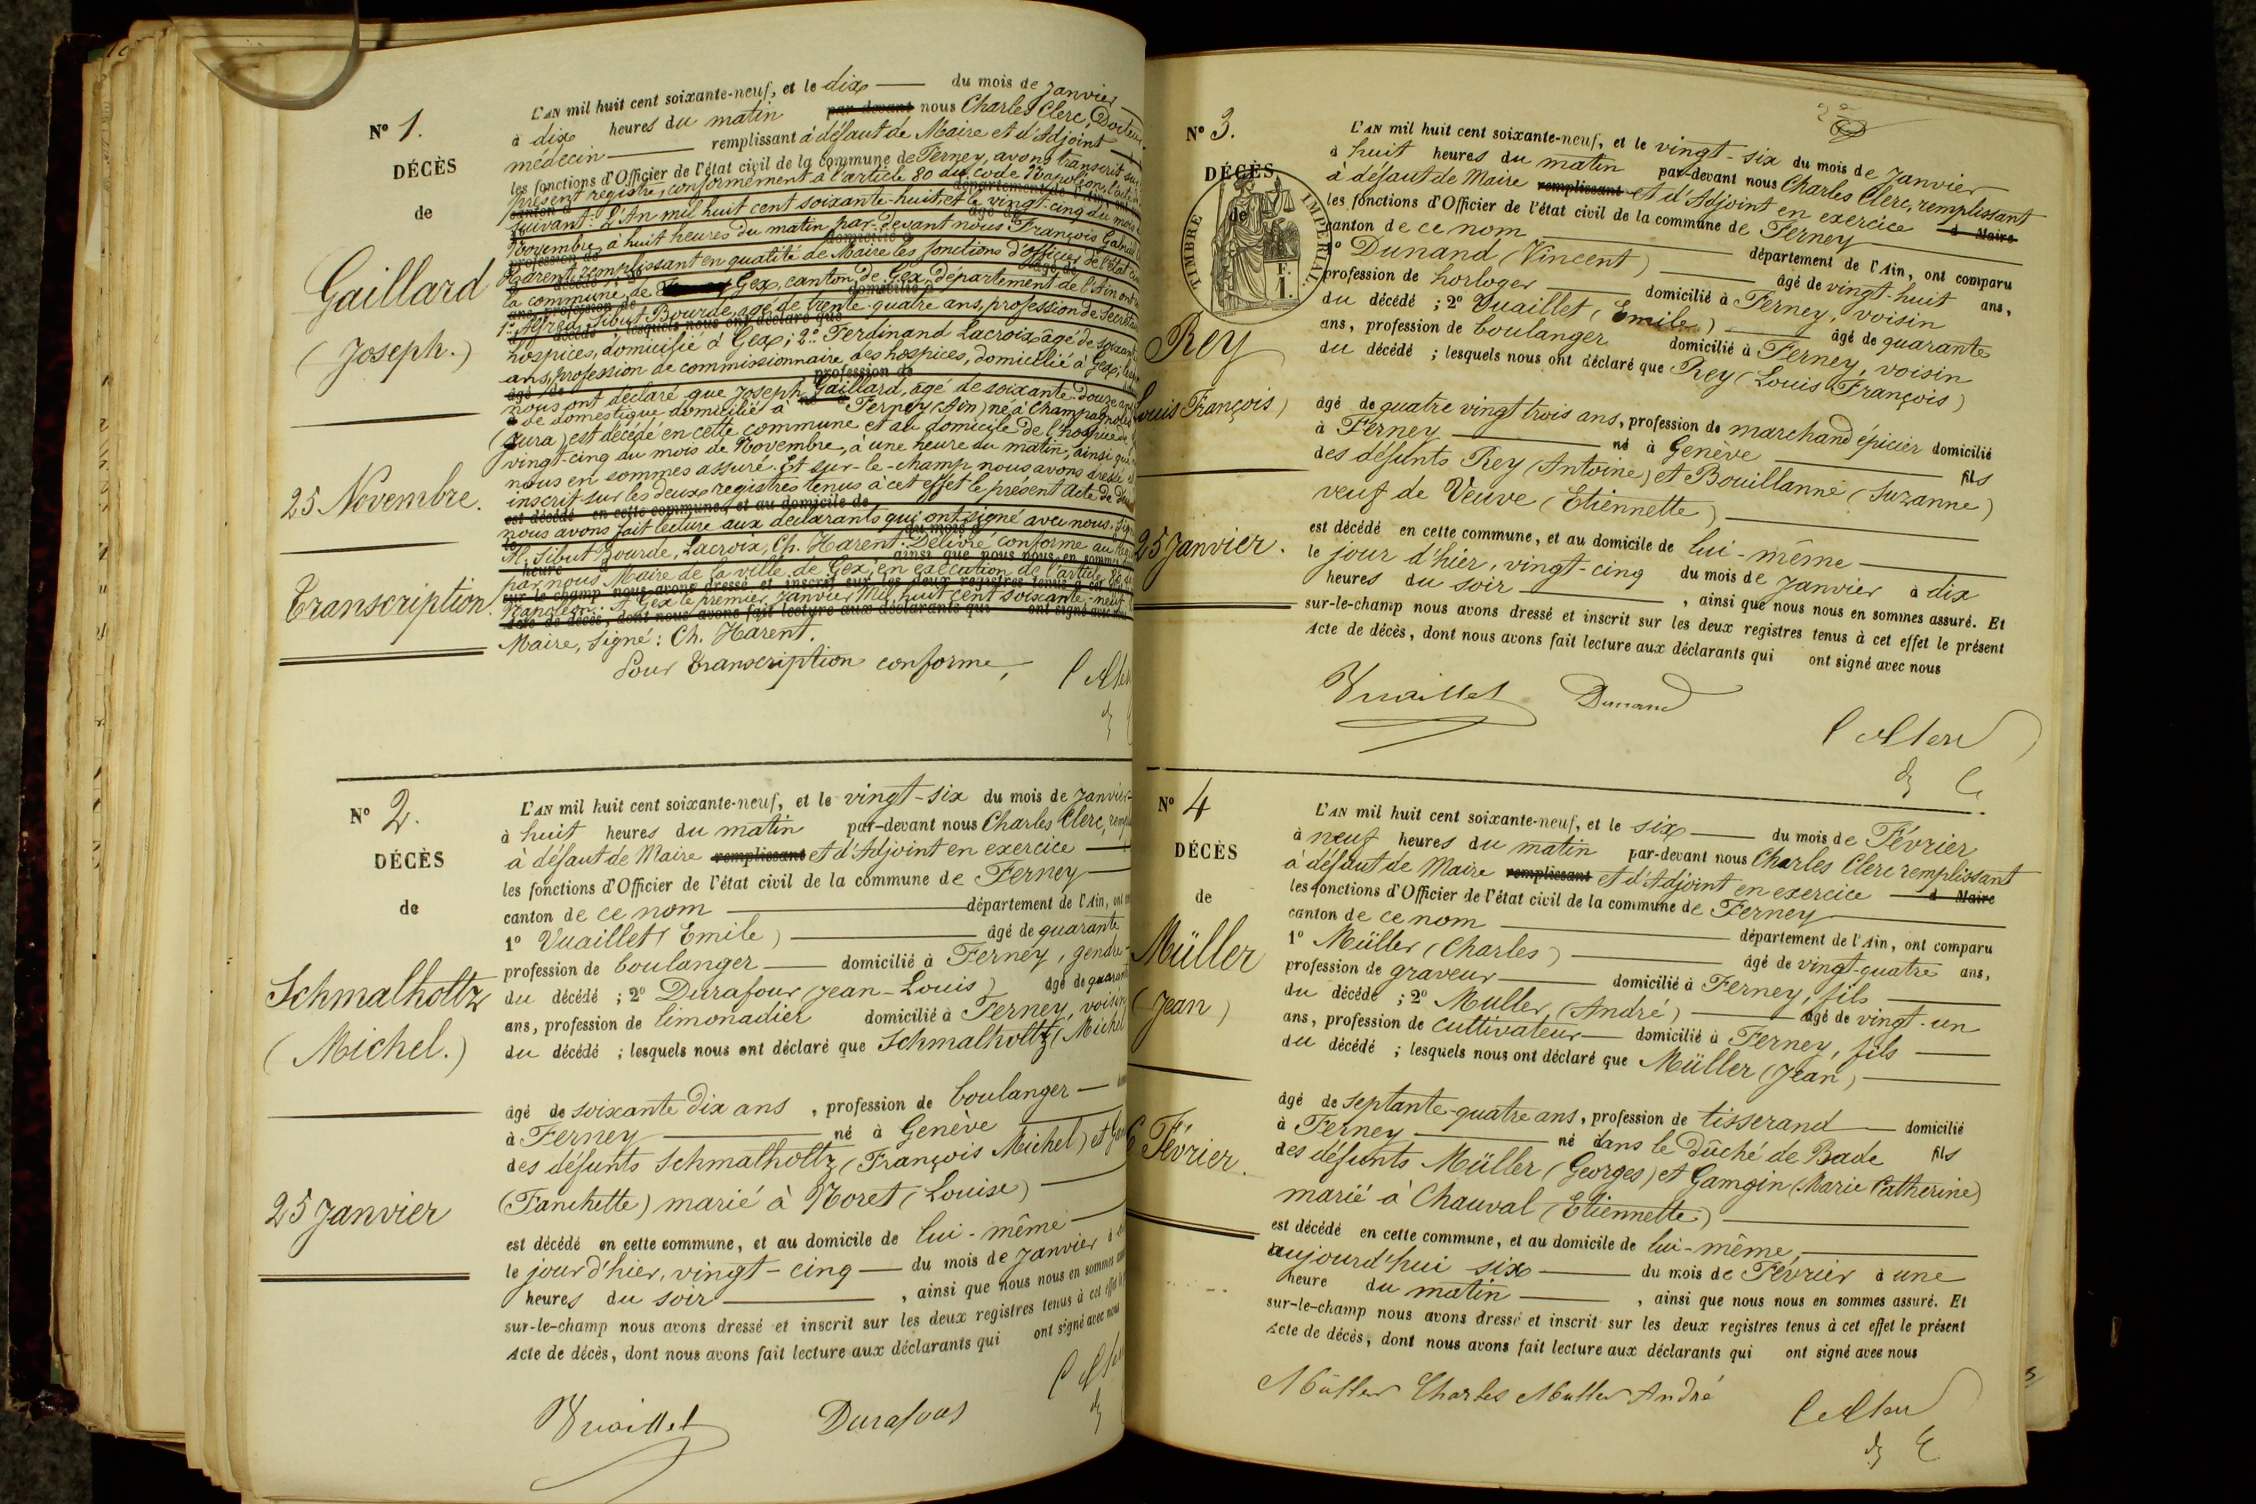 N° 1.
DÉCÈS
de
Gaillard
(Joseph.)
25 Novembre.
Transcription.
L'AN mil huit cent soixante-neuf, et le dix du mois de Janvier
à dix heures du matin par-devant nous Charles Clerc, Docteur
médecin remplissant à défaut de Maire et d'Adjoint
les fonctions d'Officier de l'état civil de la commune de Ferney, avons transcrit sur
présent registre, conformément à l'article 80 du Code Napoléon, l'acte
suivant: L'An mil huit cent soixante-huit, et le vingt-cinq du mois
Novembre, à huit heures du matin par-devant nous François Gabriel
Harent, remplissant en qualité de Maire les fonctions d'officier de l'état
la commune de Gex, canton de Gex, département de l'Ain ont
1° Alfred Sibut Bourde, agé de trente-quatre ans, profession de Secrétaire
hospices, domicilié à Gex; 2° Ferdinand Lacroix agé de soixante
ans, profession de commissionnaire des hospices, domicilié à Gex;
nous ont déclaré que Joseph Gaillard, âgé de soixante-douze ans
de domestique domicilié à Ferney (Ain) né à Champagnole
(Jura) est décédé en cette commune et au domicile de l'hospice
vingt-cinq du mois de Novembre, à une heure du matin, ainsi que
nous en sommes assuré. Et sur-le-champ nous avons dressé et
inscrit sur les deux registres tenus à cet effet le présent Acte de
nous avons fait lecture aux déclarants qui ont signé avec nous.
Sibut Bourde, Lacroix, Ch. Harent. Délivré conforme au
par nous Maire de la ville de Gex, en exécution de l'article 80
Napoléon: A Gex le premier Janvier Mil huit cent soixante-neuf,
Maire, signé: Ch. Harent.
Pour transcription conforme,
N° 2.
DÉCÈS
de
Schmalholtz
(Michel.)
25 Janvier
L'AN mil huit cent soixante-neuf, et le vingt-six du mois de Janvier
à huit heures du matin par-devant nous Charles Clerc,
à défaut de Maire remplissant et d'Adjoint en exercice
les fonctions d'Officier de l'état civil de la commune de Ferney
canton de ce nom département de l'Ain, ont
1° Vuaillet (Emile) âgé de quarante
profession de boulanger domicilié à Ferney, gendre
du décédé ; 2° Durafour (Jean-Louis) âgé de quarante
ans, profession de limonadier domicilié à Ferney, voisin
du décédé ; lesquels nous ont déclaré que Schmalholtz (Michel
âgé de soixante dix ans , profession de boulanger
à Ferney né à Genève
des défunts Schmalholtz (François Michel) et
(Fanchette) marié à Noret (Louise)
est décédé en cette commune, et au domicile de lui-même
le jour d'hier, vingt-cinq du mois de Janvier à
heures du soir , ainsi que nous nous en sommes
sur-le-champ nous avons dressé et inscrit sur les deux registres tenus à cet effet
Acte de décès, dont nous avons fait lecture aux déclarants qui ont signé avec nous
Vuaillet Durafour
N° 3.
DÉCÈS
de
TIMBRE IMPERIAL
F.
1.
Rey
Louis François)
25 Janvier.
L'AN mil huit cent soixante-neuf, et le vingt-six du mois de Janvier
à huit heures du matin par-devant nous Charles Clerc, remplissant
à défaut de Maire remplissant et d'Adjoint en exercice d Maire
les fonctions d'Officier de l'état civil de la commune de Ferney
canton de ce nom département de l'Ain, ont comparu
1° Dunand (Vincent) âgé de vingt-huit ans,
profession de horloger domicilié à Ferney, voisin
du décédé ; 2° Vuaillet (Emile) âgé de quarante
ans, profession de boulanger domicilié à Ferney, voisin
du décédé ; lesquels nous ont déclaré que Rey (Louis François)
âgé de quatre vingt trois ans, profession de marchand épicier domicilié
à Ferney né à Genève fils
des défunts Rey (Antoine) et Bouillanne (Suzanne)
veuf de Veuve (Etiennette)
est décédé en cette commune, et au domicile de lui-même
le jour d'hier, vingt-cinq du mois de Janvier à dix
heures du soir , ainsi que nous nous en sommes assuré. Et
sur-le-champ nous avons dressé et inscrit sur les deux registres tenus à cet effet le présent
Acte de décès, dont nous avons fait lecture aux déclarants qui ont signé avec nous
Vuaillet Dunand
N° 4
DÉCÈS
de
Müller
(Jean)
6 Février.
L'AN mil huit cent soixante-neuf, et le six du mois de Février
à neuf heures du matin par-devant nous Charles Clerc remplissant
à défaut de Maire remplissant et d'Adjoint en exercice d Maire
les fonctions d'Officier de l'état civil de la commune de Ferney
canton de ce nom département de l'Ain, ont comparu
1° Müller (Charles) âgé de vingt-quatre ans,
profession de graveur domicilié à Ferney, fils
du décédé ; 2° Muller (André) âgé de vingt-un
ans, profession de cultivateur domicilié à Ferney, fils
du décédé ; lesquels nous ont déclaré que Müller (Jean)
âgé de septante-quatre ans, profession de tisserand domicilié
à Ferney né dans le Dûché de Bade fils
des défunts Müller (Georges) et Gamgin (Marie Catherine)
marié à Chauval (Etiennette)
est décédé en cette commune, et au domicile de lui-même,
aujourd'hui six du mois de Février à une
heure du matin , ainsi que nous nous en sommes assuré. Et
sur-le-champ nous avons dressé et inscrit sur les deux registres tenus à cet effet le présent
Acte de décès, dont nous avons fait lecture aux déclarants qui ont signé avec nous
Müller Charles Muller André